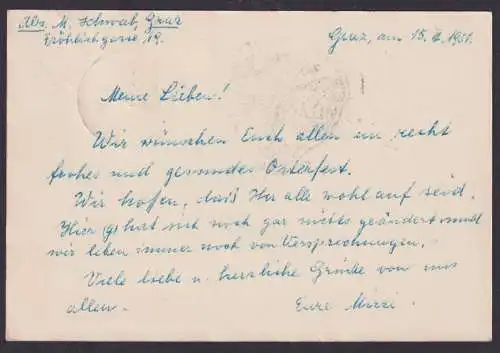 Abs. M. Schwab, Graz
Fröhlichgasse 19.
Graz, am 15. 3. 1951.
Meine Lieben!
Wir wünschen Euch allen ein recht
frohes und gesundes Osterfest.
Wir hoffen, daß Ihr alle wohl auf seid.
Hier hat sich noch gar nichts geändert und
wir leben immer noch von Versprechungen.
Viele liebe u. herzliche Grüße von uns
allen. Eure Mizzi.